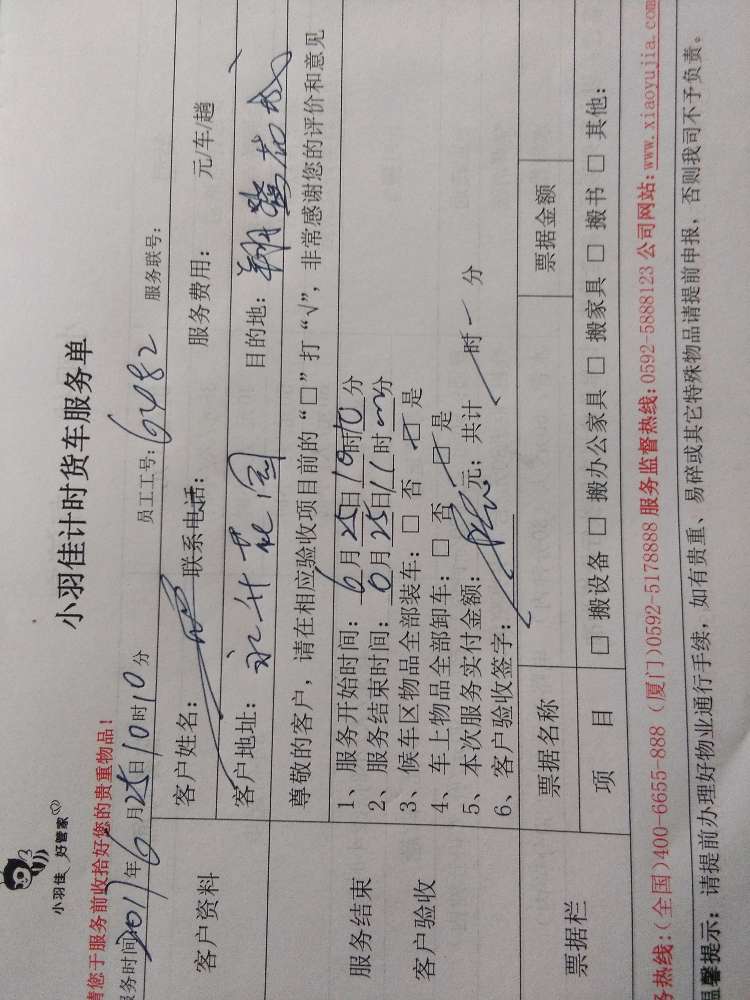 小羽佳 好管家
小羽佳计时货车服务单
请您于服务前收拾好您的贵重物品!
服务时间2017年6月25日10时10分 员工工号: 6482 服务联号:
客户资料
客户姓名: 联系电话: 服务费用: 元/车/趟
客户地址: 目的地: 翔鹭花城
服务结束
客户验收
尊敬的客户,请在相应验收项目前的“□”打“√”,非常感谢您的评价和意见
1、服务开始时间: 6月25日10时10分
2、服务结束时间: 6月25日11时分
3、候车区物品全部装车: □ 否 □ 是
4、车上物品全部卸车: □ 否 □ 是
5、本次服务实付金额: 元; 共计 时 分
6、客户验收签字:
票据栏
票据名称 票据金额
项 目 □ 搬设备 □ 搬办公家具 □ 搬家具 □ 搬书 □ 其他:
务热线:(全国)400-6655-888 (厦门)0592-5178888 服务监督热线:0592-5888123 公司网站:www.xiaoyujia.com
温馨提示: 请提前办理好物业通行手续,如有贵重、易碎或其它特殊物品请提前申报,否则我司不予负责。